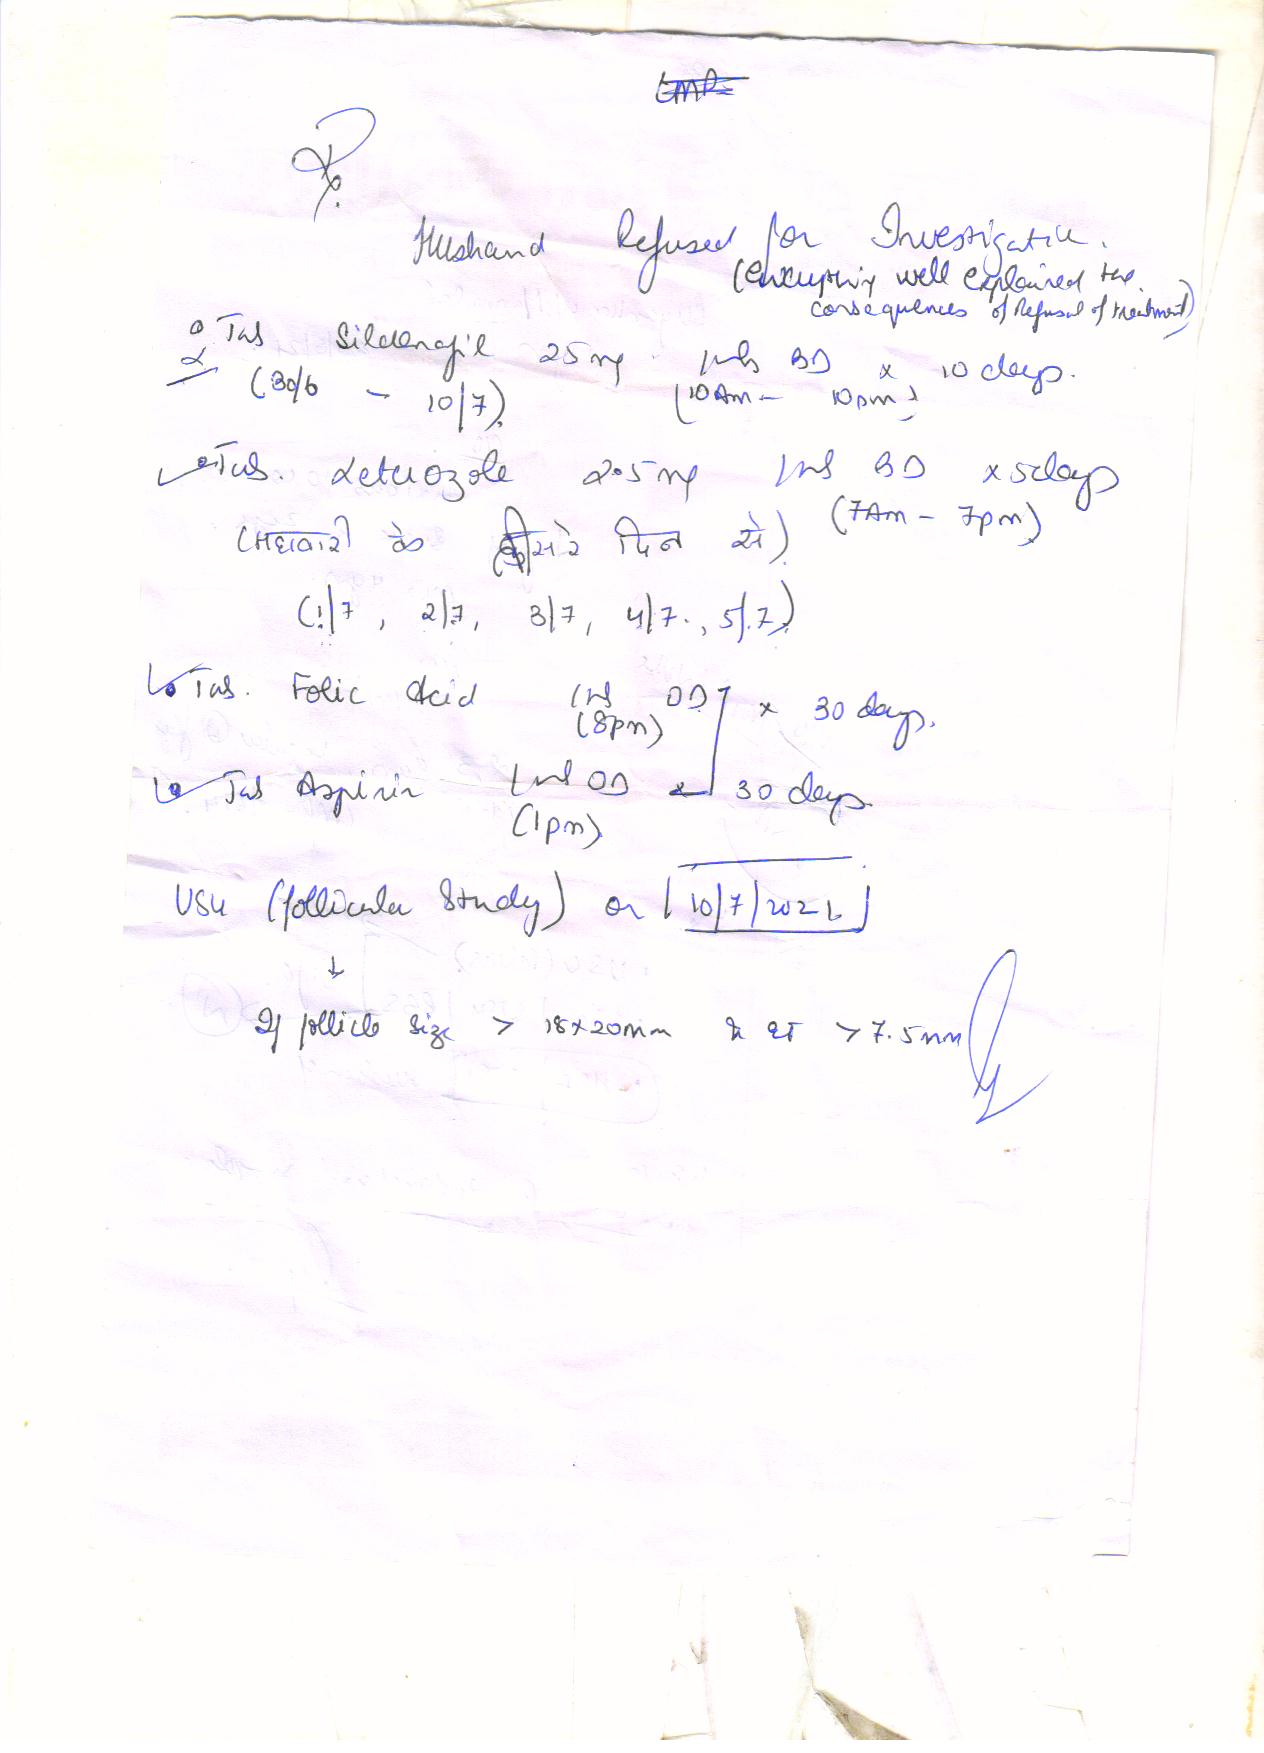 Rx
Husband Refused for Investigation.
(everything well explained the
consequences of Refusal of treatment)
Tab Sildenafil 25 mg 1 tab BD x 10 days.
(30/6 - 10/7) (10 Am - 10 pm)
Tab. Letrozole 2.5 mg 1 tab BD x 5 days
(माहवारी के दूसरे दिन से) (7 Am - 7 pm)
(1/7, 2/7, 3/7, 4/7, 5/7)
Tab. Folic Acid 1 tab OD x 30 days.
(8 pm)
Tab Aspirin 1 tab OD x 30 days.
(1 pm)
USG (follicular Study) on
If follicle size > 18x20mm & ET > 7.5mm